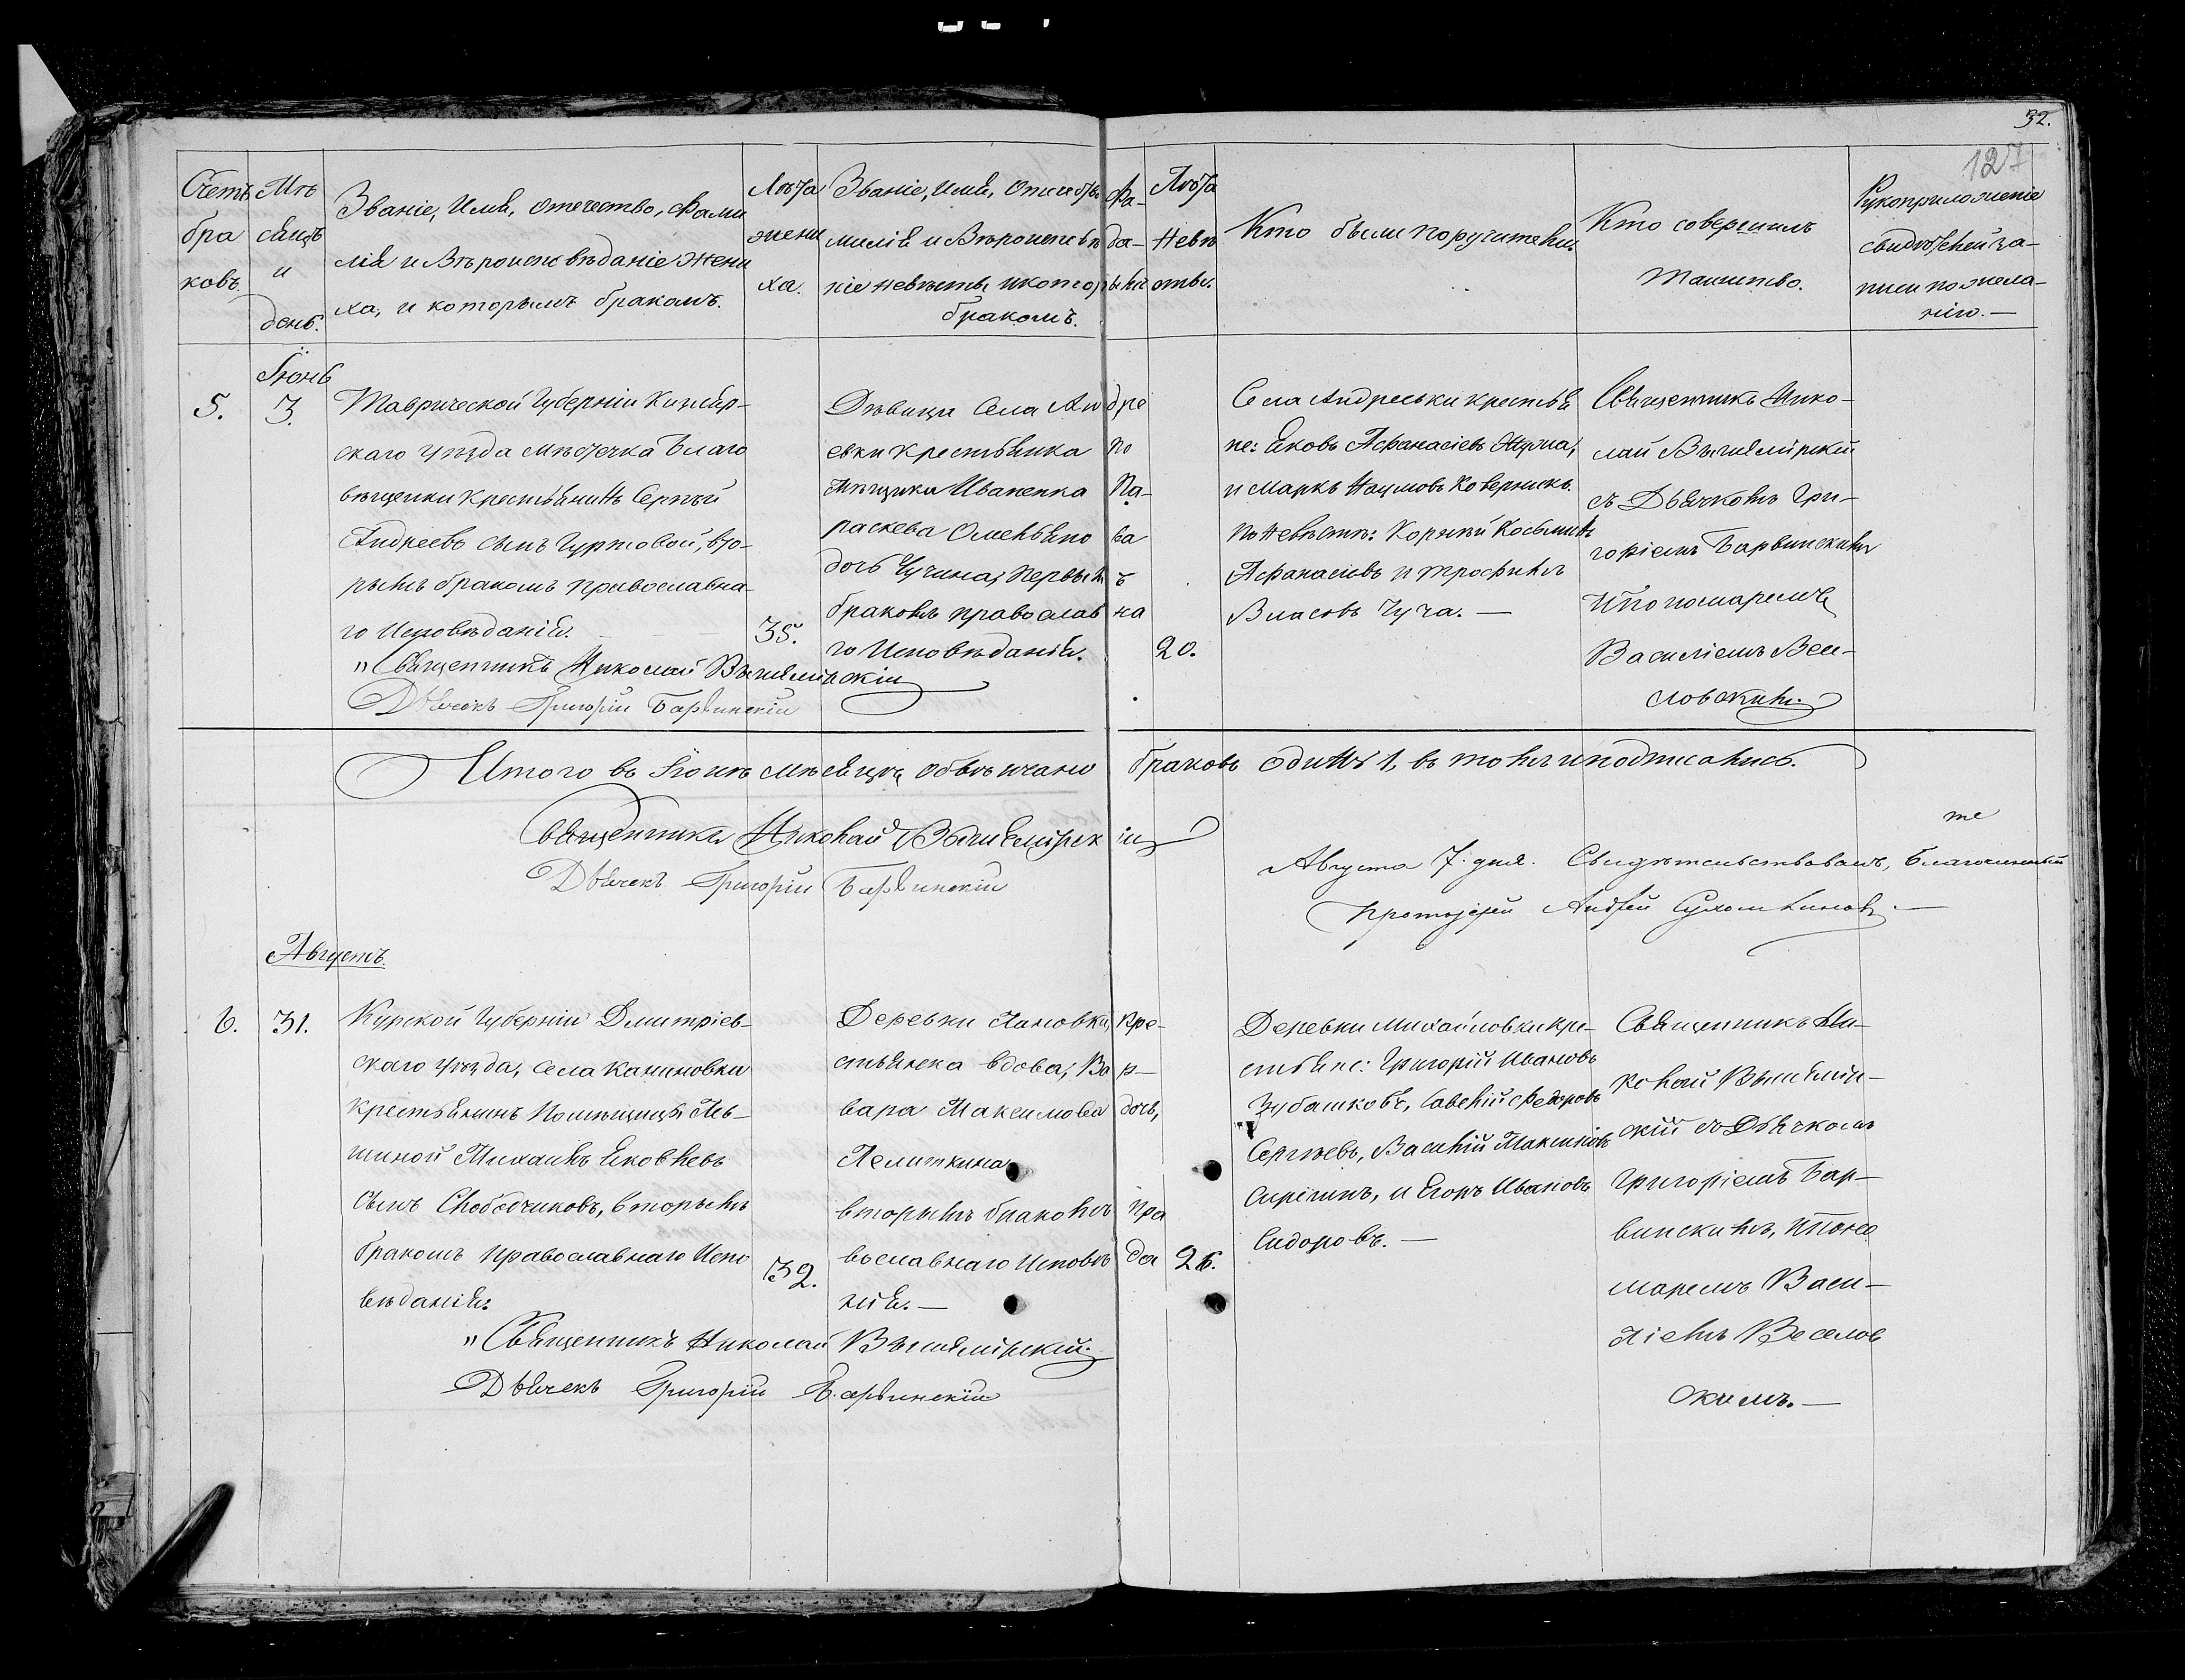 32.
127
Счетъ браковъ.
Мѣсяцъ и день.
Званіе, Имя, Отечество, Фами
лія и Вѣроисповѣданіе Жени
ха, и которымъ бракомъ.
Лѣта жени
ха.
Званіе, Имя, Отечество, Фа-
милія и Вѣроисповѣда-
ніе невѣсты и которымъ
бракомъ.
Лѣта
Невѣ
сты.
Кто были поручители
Кто совершилъ
Таинство.
Рукоприложеніе
свидѣтелей за-
писи по жела-
нію. —
Іюнь
5.
3.
Таврической Губерніи
скаго уѣзда мѣстечка Благо
вѣщенки Крестьянинъ Сергѣй
Андреевъ сынъ Гуртовой, вто-
рымъ бракомъ православна-
го Исповѣданія.
35.
Дѣвица Села Андре
евки крестьянка по
мѣщика Иваненка Па-
раскева Омельянова
дочь Чучина, первымъ
бракомъ православна
го Исповѣданія.
20.
Села Андреевки крестья
не: Яковъ Афанасіевъ
и Маркъ Наумовъ
По Невѣстѣ: Корнѣй Косьминъ
Афанасіевъ и Трофимъ
Власовъ Чуча. —
Священникъ Нико-
лай Вышемірскій
съ Дьячкомъ Гри-
горіемъ Барвинскимъ
и Пономаремъ
Василіемъ Весе-
ловскимъ.
„Священникъ Николай Вышемірскій
Дьячекъ Григорій Барвинскій
Итого въ Іюнѣ мѣсяцѣ обвѣнчано браковъ одинъ 1, въ томъ и подписались.
Священникъ Николай Вышемірскій
Дьячекъ Григорій Барвинскій
Августа 7. дня. Свидѣтельствовалъ, Благочинный
Протоіерей Андрей Сухомлиновъ. —
Августъ.
6.
31.
Курской Губерніи Дмитріев-
скаго уѣзда, села Калиновки
крестьянинъ Помѣщицы Ль-
шиной Михаилъ Яковлевъ
сынъ Слободчиковъ, вторымъ
бракомъ православнаго Испо
вѣданія.
32.
Деревни Пановки, кре-
стьянка вдова, Вар-
вара Максимова дочь,
Лелиткина
вторымъ бракомъ пра
вославнаго Исповѣда
нія. —
26.
Деревни Михайловки кре-
стьяне: Григорій Ивановъ
Зубашковъ, Савелій Федоровъ
Сергѣевъ, Василій Максимовъ
и Егоръ Ивановъ
Сидоровъ. —
Священникъ Ни-
колай Вышемір-
скій съ Дьячкомъ
Григоріемъ Бар-
винскимъ, и Поно
маремъ Васи-
ліемъ Веселов
скимъ. —
„Священникъ Николай Вышемірскій.
Дьячекъ Григорій Барвинскій